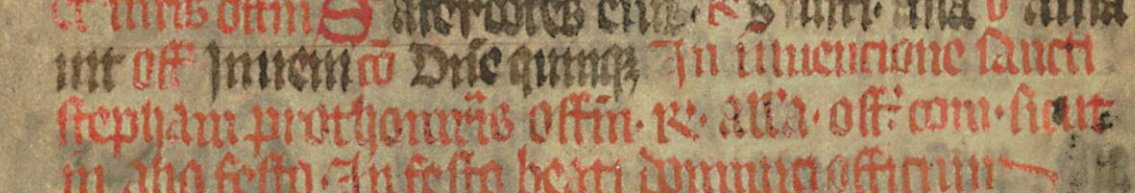 et mris offm Sacerdotes eius. R. Siunt. alla v alla
uit off Inueni co Dne quinqz In inuencione sancti
stephani prothomris offm. R. alla. off. com. sicut
in alio festo. In festo beati dominici officium